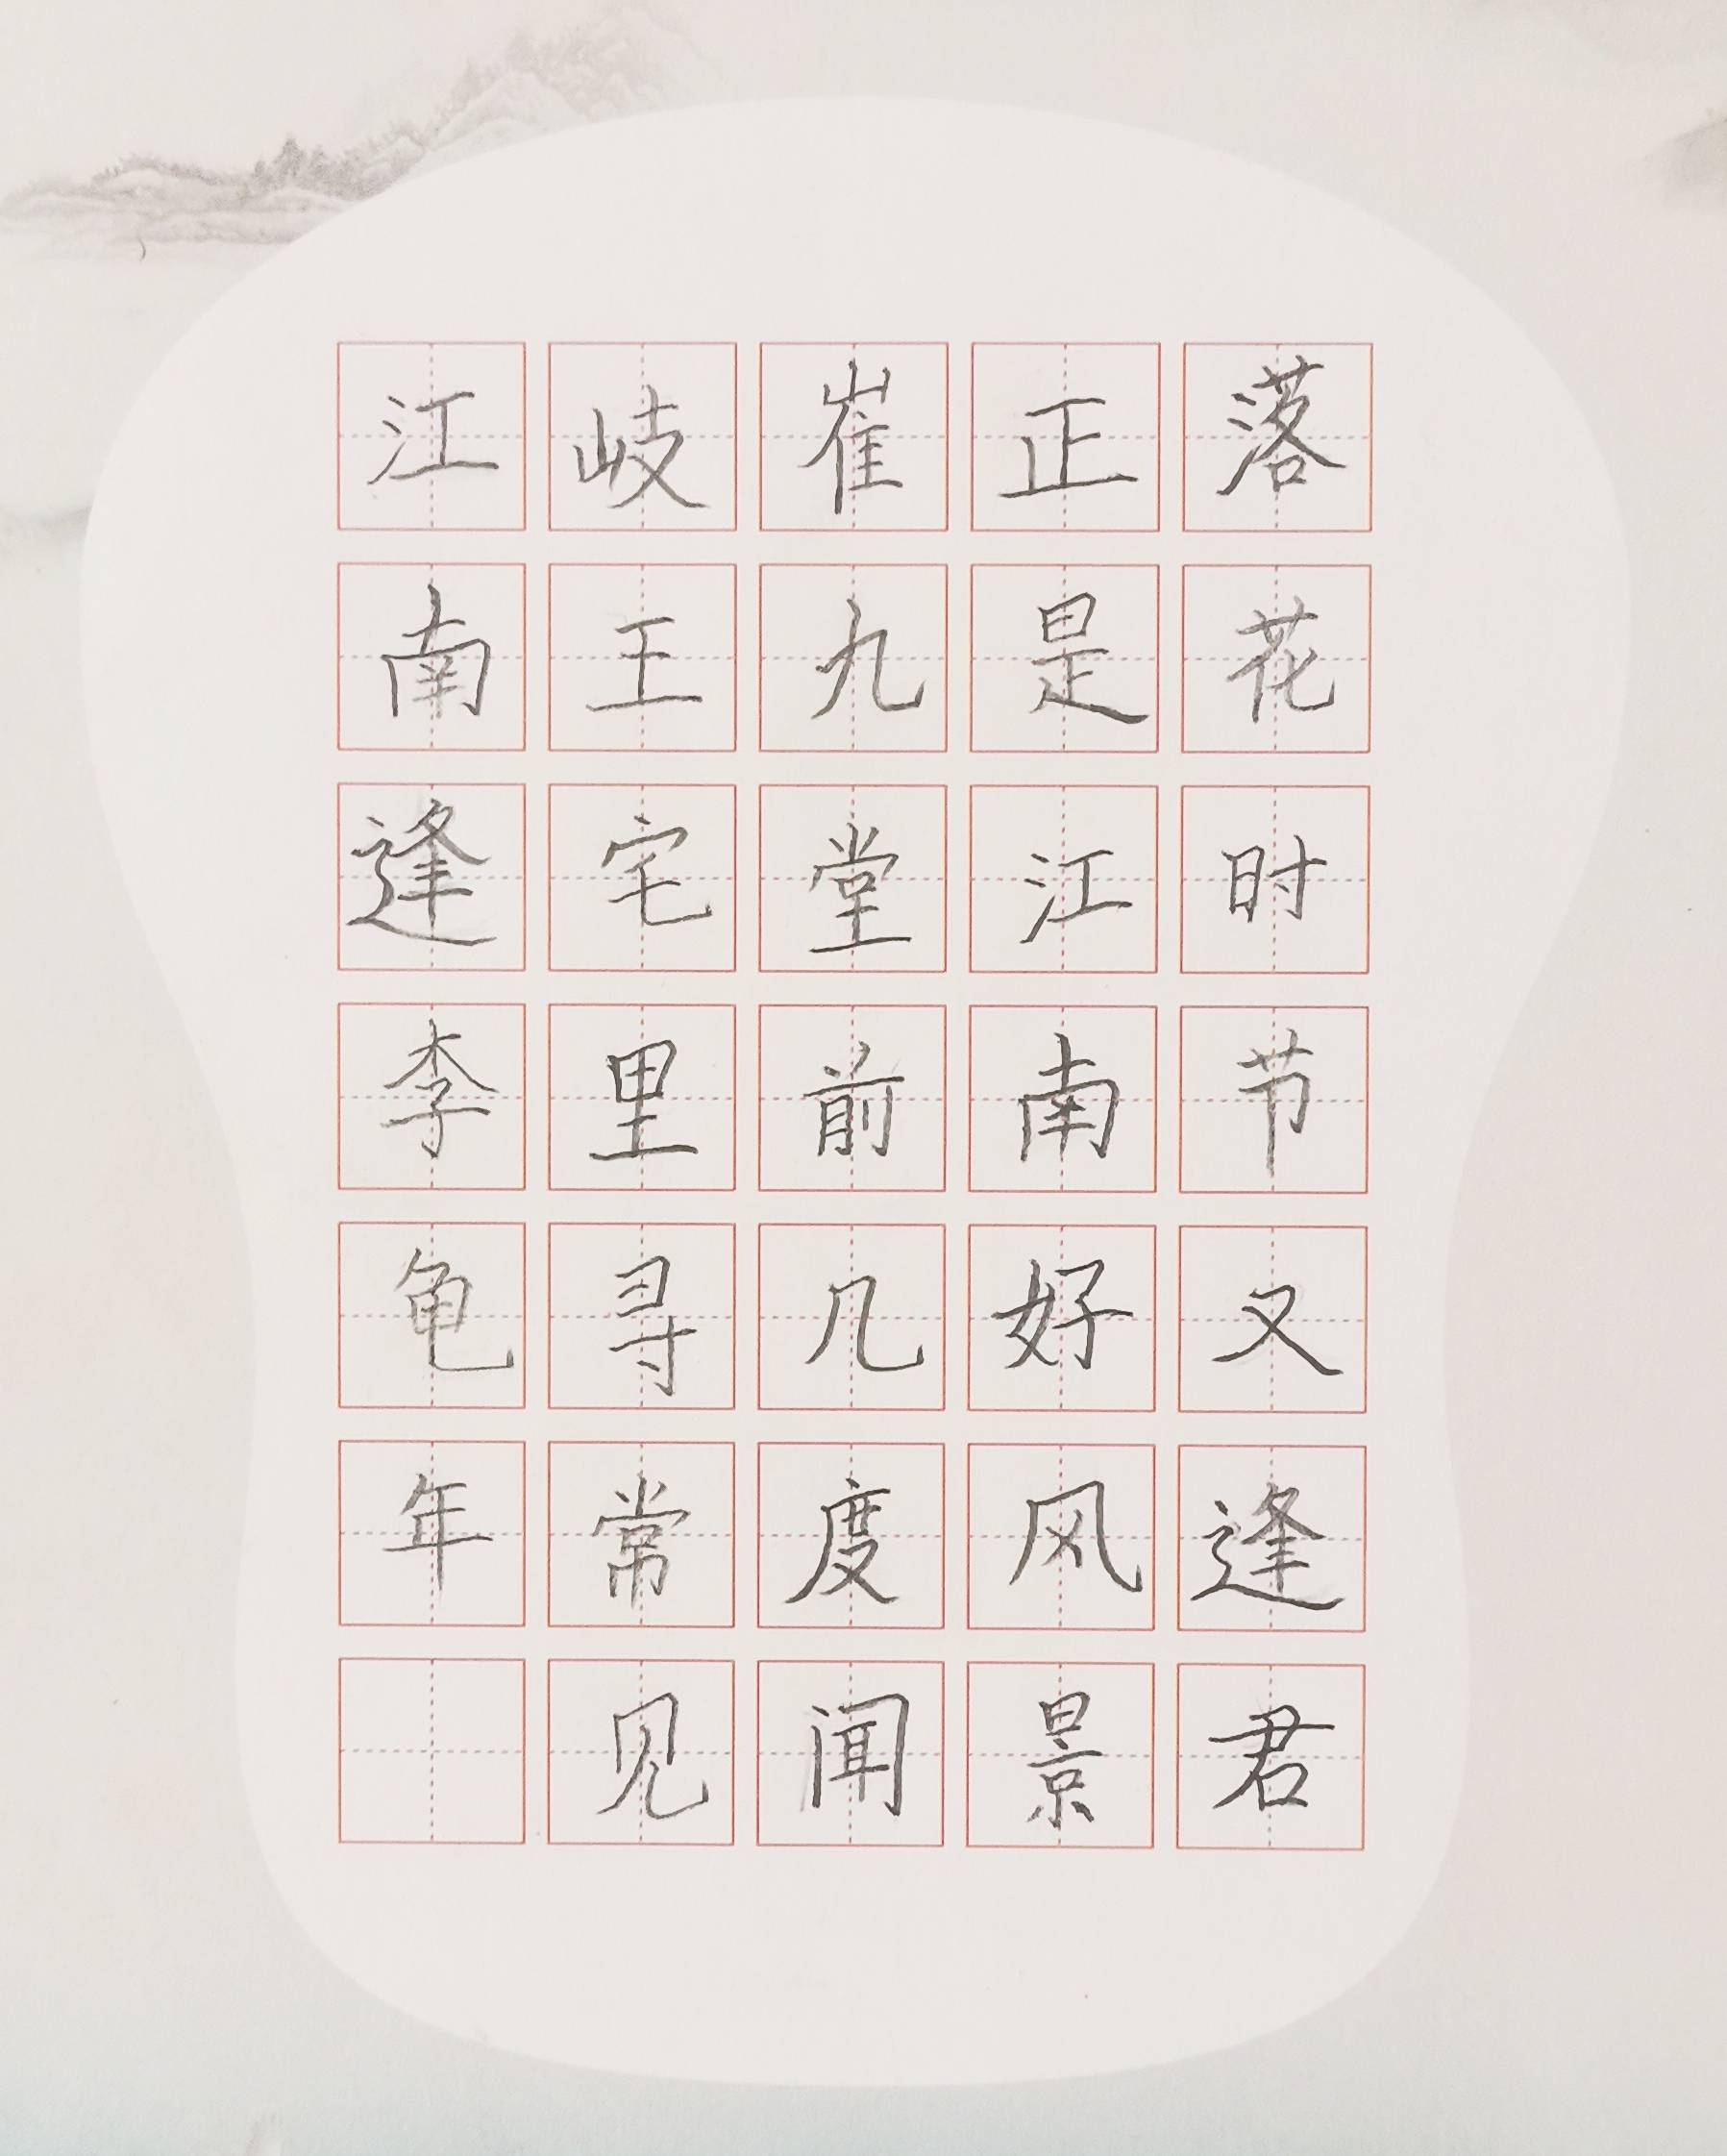 江南逢李龟年
岐王宅里寻常见
崔九堂前几度闻
正是江南好风景
落花时节又逢君